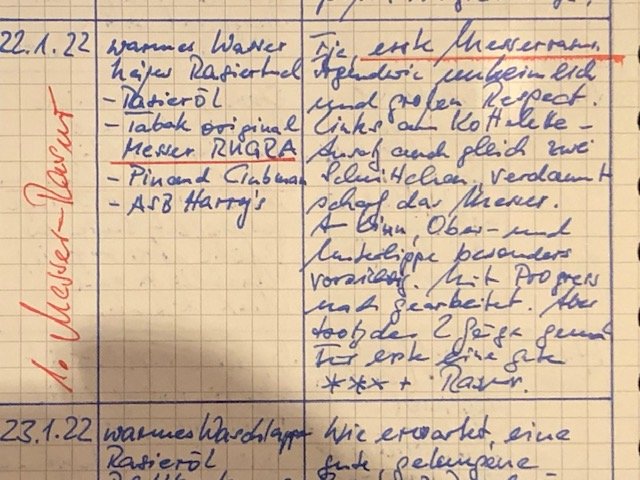 22.1.22
1. Messer-Rasur
warmes Wasser
heißes Rasiertuch
- Rasieröl
- Tabak original
Messer RUGRA
- Pinaud Clubman
- ASB Harry's
Tja, erste Messerrasur.
Irgendwie unheimlich
und großen Respect.
Links am Kottelette-
Ansatz auch gleich zwei
Schnittchen, verdammt
scharf das Messer.
A Kinn, Ober- und
Unterlippe besonders
vorsichtig. Mit Progress
nach gearbeitet. Aber
trotz der 2 Gänge
Für erste eine gute
***+ Rasur.
23.1.22
warmes Waschlappen
Rasieröl
Wie erwartet, eine
gute, gelungene